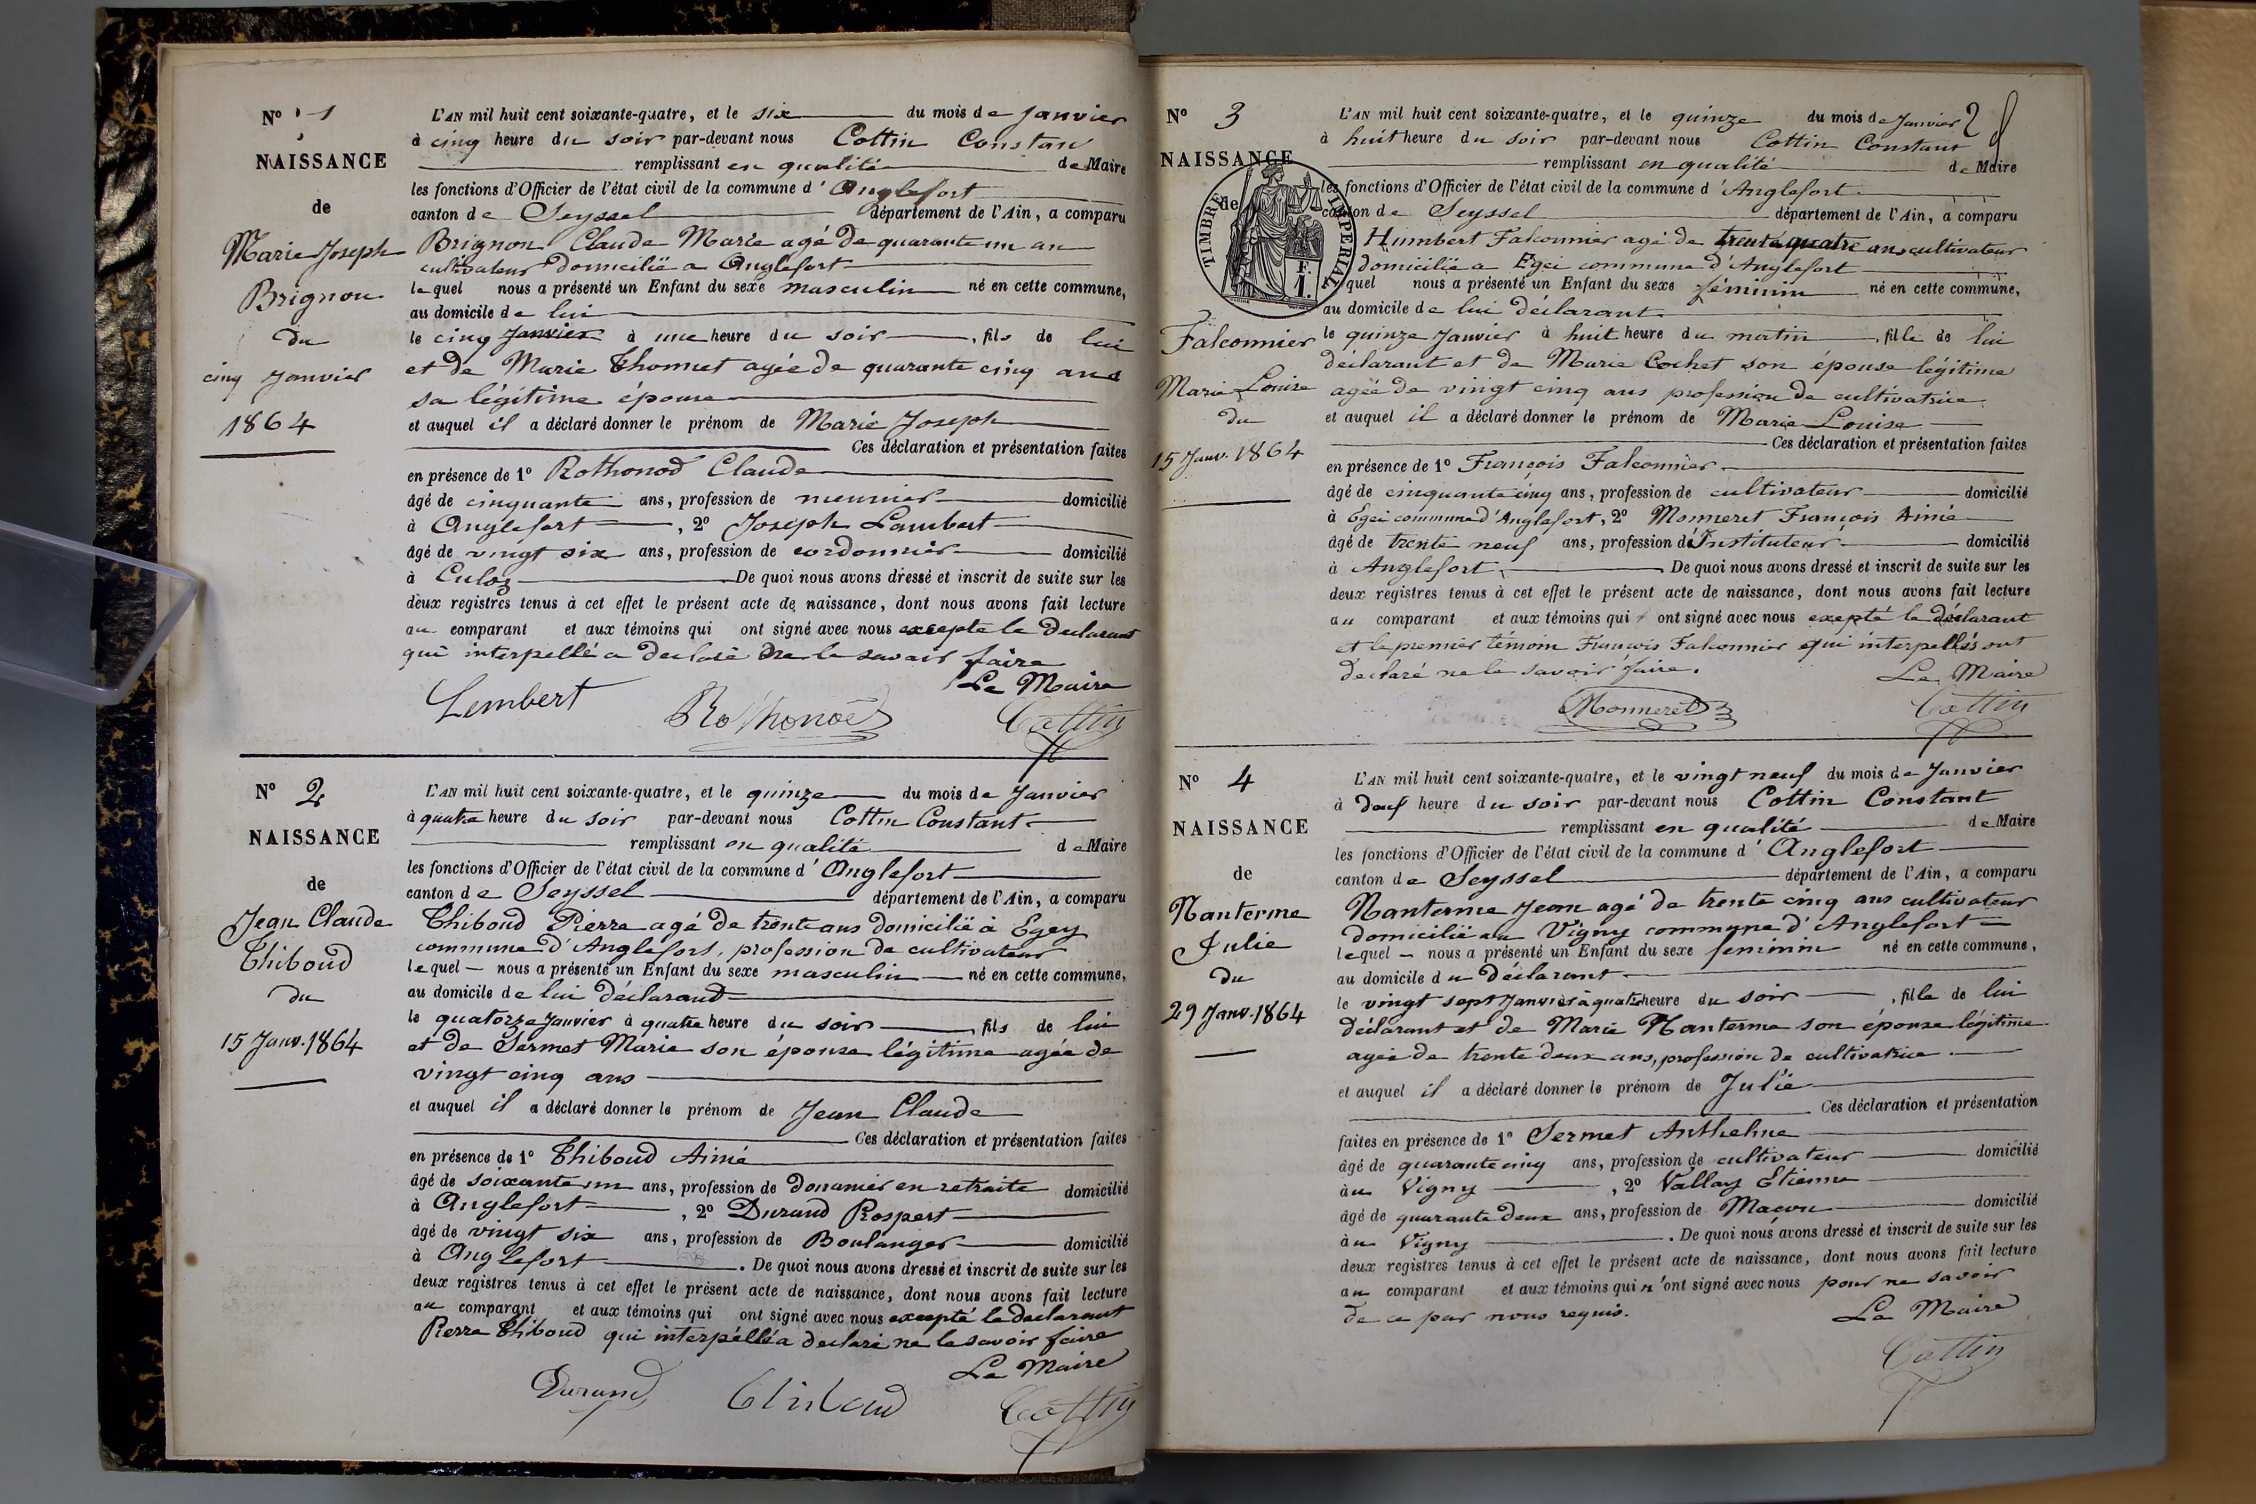 N° 1
NAISSANCE
de
Marie Joseph
Brignon
du
cinq Janvier
1864
L'AN mil huit cent soixante-quatre, et le six du mois de Janvier
à cinq heure du soir par-devant nous Cottin Constan
remplissant en qualité de Maire
les fonctions d'Officier de l'état civil de la commune d'Anglefort
canton de Seyssel département de l'Ain, a comparu
Brignon Claude Marie agé de quarante un an
cultivateur domicilié a Anglefort
lequel nous a présenté un Enfant du sexe masculin né en cette commune,
au domicile de lui
le cinq Janvier à une heure du soir, fils de lui
et de Marie Thomet agée de quarante cinq ans
sa légitime épouse
et auquel il a déclaré donner le prénom de Marie Joseph
Ces déclaration et présentation faites
en présence de 1° Rothonod Claude
âgé de cinquante ans, profession de meunier domicilié
à Anglefort, 2° Joseph Lambert
âgé de vingt six ans, profession de cordonnier domicilié
à Culoz De quoi nous avons dressé et inscrit de suite sur les
deux registres tenus à cet effet le présent acte de naissance, dont nous avons fait lecture
au comparant et aux témoins qui ont signé avec nous excepté le declarant
qui interpellé a declaré ne le savoir faire
Le Maire
Lembert Rothonod Cottin
N° 2
NAISSANCE
de
Jean Claude
Thiboud
du
15 Janv. 1864
L'AN mil huit cent soixante-quatre, et le quinze du mois de Janvier
à quatre heure du soir par-devant nous Cottin Constant
remplissant en qualité de Maire
les fonctions d'Officier de l'état civil de la commune d'Anglefort
canton de Seyssel département de l'Ain, a comparu
Thiboud Pierre agé de trente ans domicilié à Egey
commune d'Anglefort, profession de cultivateur
lequel nous a présenté un Enfant du sexe masculin né en cette commune,
au domicile de lui déclarant
le quatorze Janvier à quatre heure du soir, fils de lui
et de Sermet Marie son épouse légitime agée de
vingt cinq ans
et auquel il a déclaré donner le prénom de Jean Claude
Ces déclaration et présentation faites
en présence de 1° Thiboud Aimé
âgé de soixante un ans, profession de douanier en retraite domicilié
à Anglefort, 2° Durand Rospert
âgé de vingt six ans, profession de Boulanger domicilié
à Anglefort. De quoi nous avons dressé et inscrit de suite sur les
deux registres tenus à cet effet le présent acte de naissance, dont nous avons fait lecture
au comparant et aux témoins qui ont signé avec nous excepté le declarant
Pierre Thiboud qui interpéllé a declaré ne le savoir faire
Le Maire
Durand Thiboud Cottin
2
N° 3
NAISSANCE
de
TIMBRE IMPERIAL
1 F.
Falconnier
Marie Louise
du
15 Janv. 1864
L'AN mil huit cent soixante-quatre, et le quinze du mois de Janvier
à huit heure du soir par-devant nous Cottin Constant
remplissant en qualité de Maire
les fonctions d'Officier de l'état civil de la commune d'Anglefort
canton de Seyssel département de l'Ain, a comparu
Humbert Falconnier agé de trente quatre ans cultivateur
domicilié a Egei commune d'Anglefort
quel nous a présenté un Enfant du sexe féminin né en cette commune,
au domicile de lui déclarant
le quinze Janvier à huit heure du matin, fille de lui
déclarant et de Marie Cochet son épouse légitime
agée de vingt cinq ans profession de cultivatrice
et auquel il a déclaré donner le prénom de Marie Louise
Ces déclaration et présentation faites
en présence de 1° François Falconnier
âgé de cinquante cinq ans, profession de cultivateur domicilié
à Egei commune d'Anglefort, 2° Monneret François Aimé
âgé de trente neuf ans, profession d'Instituteur domicilié
à Anglefort. De quoi nous avons dressé et inscrit de suite sur les
deux registres tenus à cet effet le présent acte de naissance, dont nous avons fait lecture
au comparant et aux témoins qui ont signé avec nous exepté le déclarant
et le premier témoin François Falconnier qui interpellés ont
déclaré ne le savoir faire.
Le Maire
Monneret Cottin
N° 4
NAISSANCE
de
Nanterme
Julie
du
29 Janv. 1864
L'AN mil huit cent soixante-quatre, et le vingt neuf du mois de Janvier
à heure du soir par-devant nous Cottin Constant
remplissant en qualité de Maire
les fonctions d'Officier de l'état civil de la commune d'Anglefort
canton de Seyssel département de l'Ain, a comparu
Nanterme Jean agé de trente cinq ans cultivateur
domicilié au Vigny commune d'Anglefort
lequel nous a présenté un Enfant du sexe feminin né en cette commune,
au domicile du déclarant
le vingt sept Janvier à quatre heure du soir, fille de lui
déclarant et de Marie Nanterme son épouse légitime
agée de trente deux ans, profession de cultivatrice.
et auquel il a déclaré donner le prénom de Julie
Ces déclaration et présentation
faites en présence de 1° Sermet Anthelme
âgé de quarante cinq ans, profession de cultivateur domicilié
àu Vigny, 2° Vallay Etienne
âgé de quarante deux ans, profession de Maçon domicilié
àu Vigny. De quoi nous avons dressé et inscrit de suite sur les
deux registres tenus à cet effet le présent acte de naissance, dont nous avons fait lecture
au comparant et aux témoins qui n'ont signé avec nous pour ne savoir
de ce par nous requis.
Le Maire
Cottin